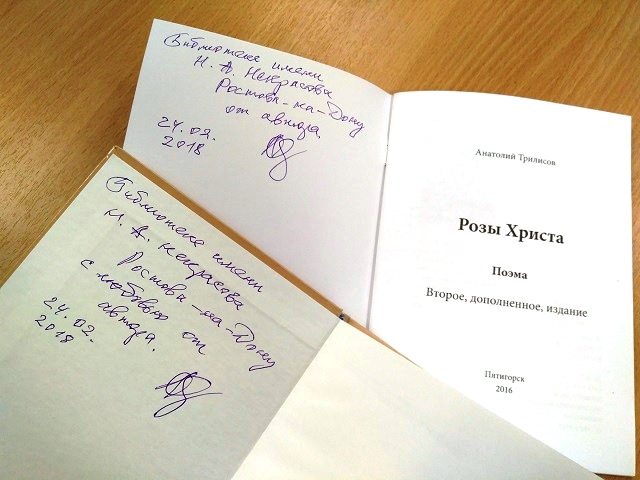 Библиотеке имени
Н. А. Некрасова
Ростова-на-Дону
от автора.
24.02.
2018
Анатолий Трилисов
Розы Христа
Поэма
Второе, дополненное, издание
Пятигорск
2016
Библиотеке имени
Н. А. Некрасова
Ростова-на-Дону
с любовью от
автора.
24.02.
2018